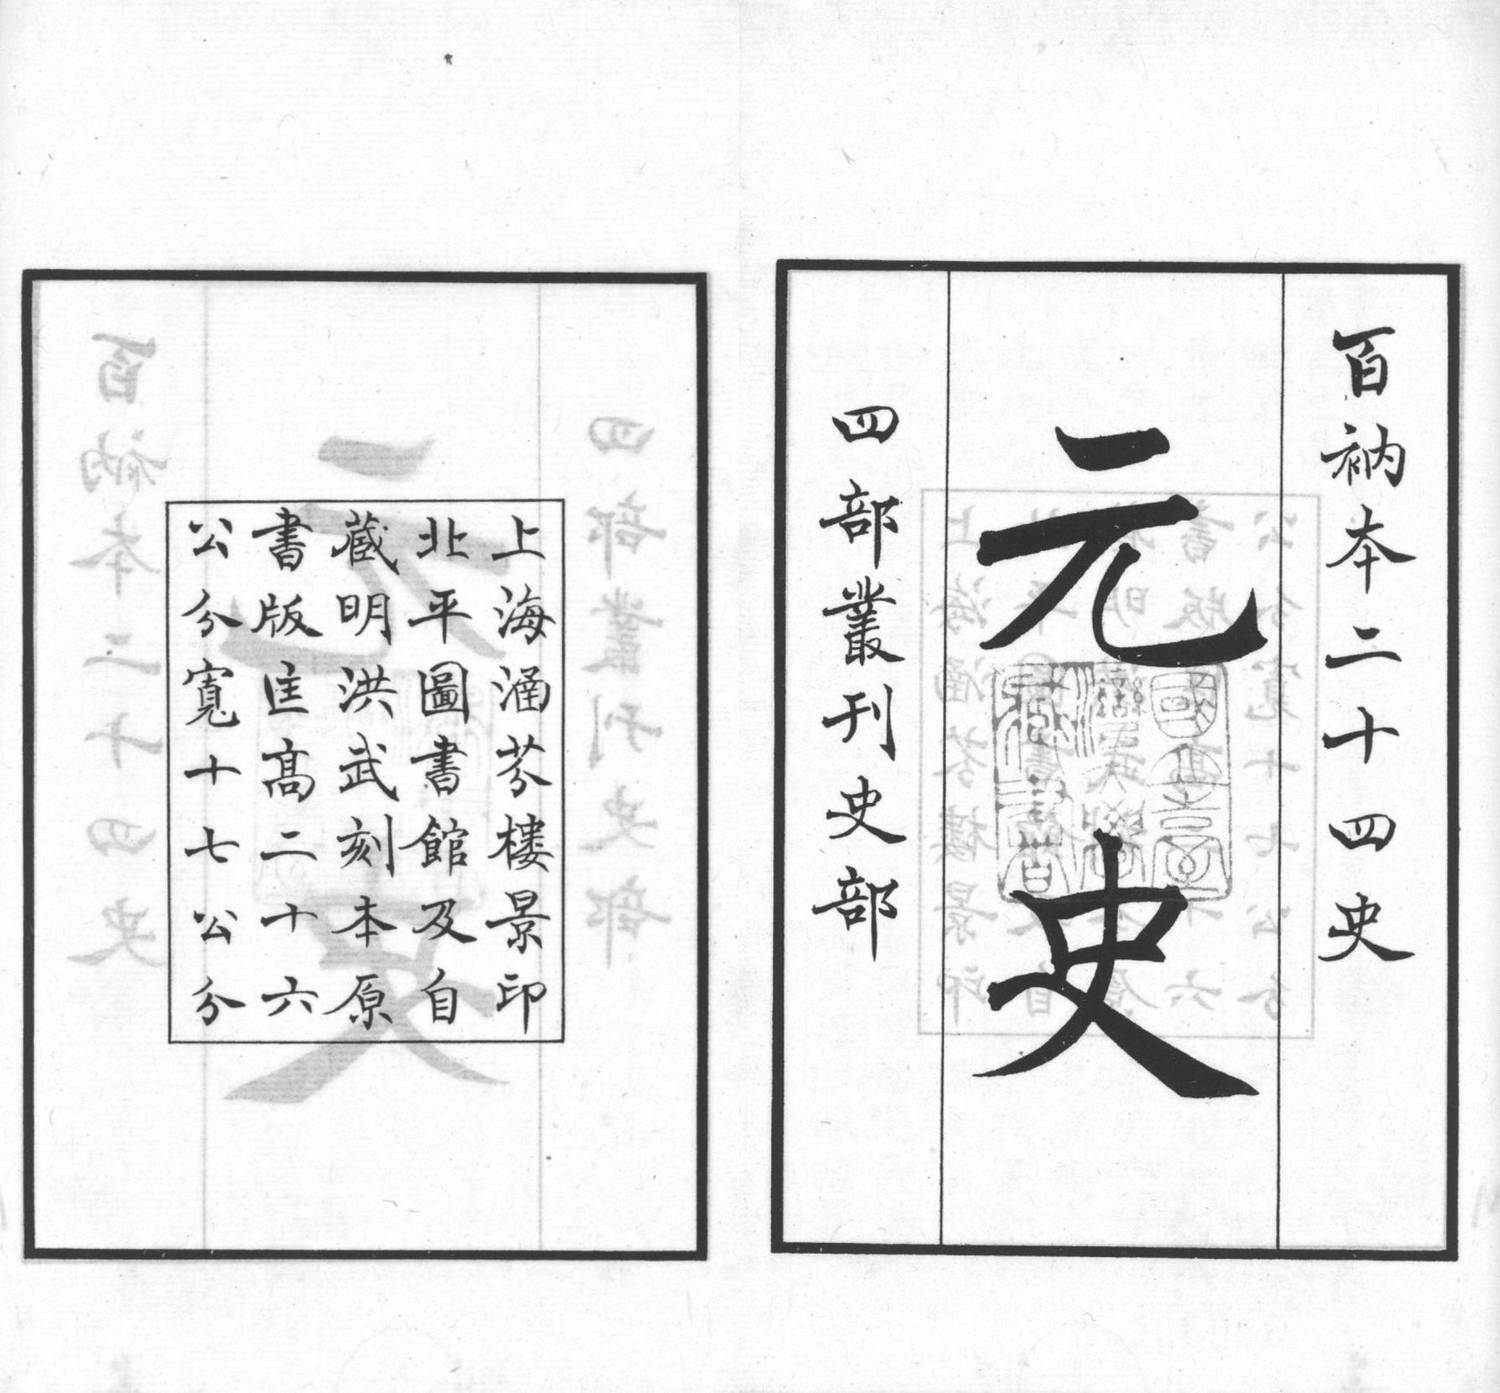 百衲本二十四史
元史
四部叢刊史部
上海涵芬樓景印
北平圖書館及自
藏明洪武刻本原
書版匡高二十六
公分寬十七公分